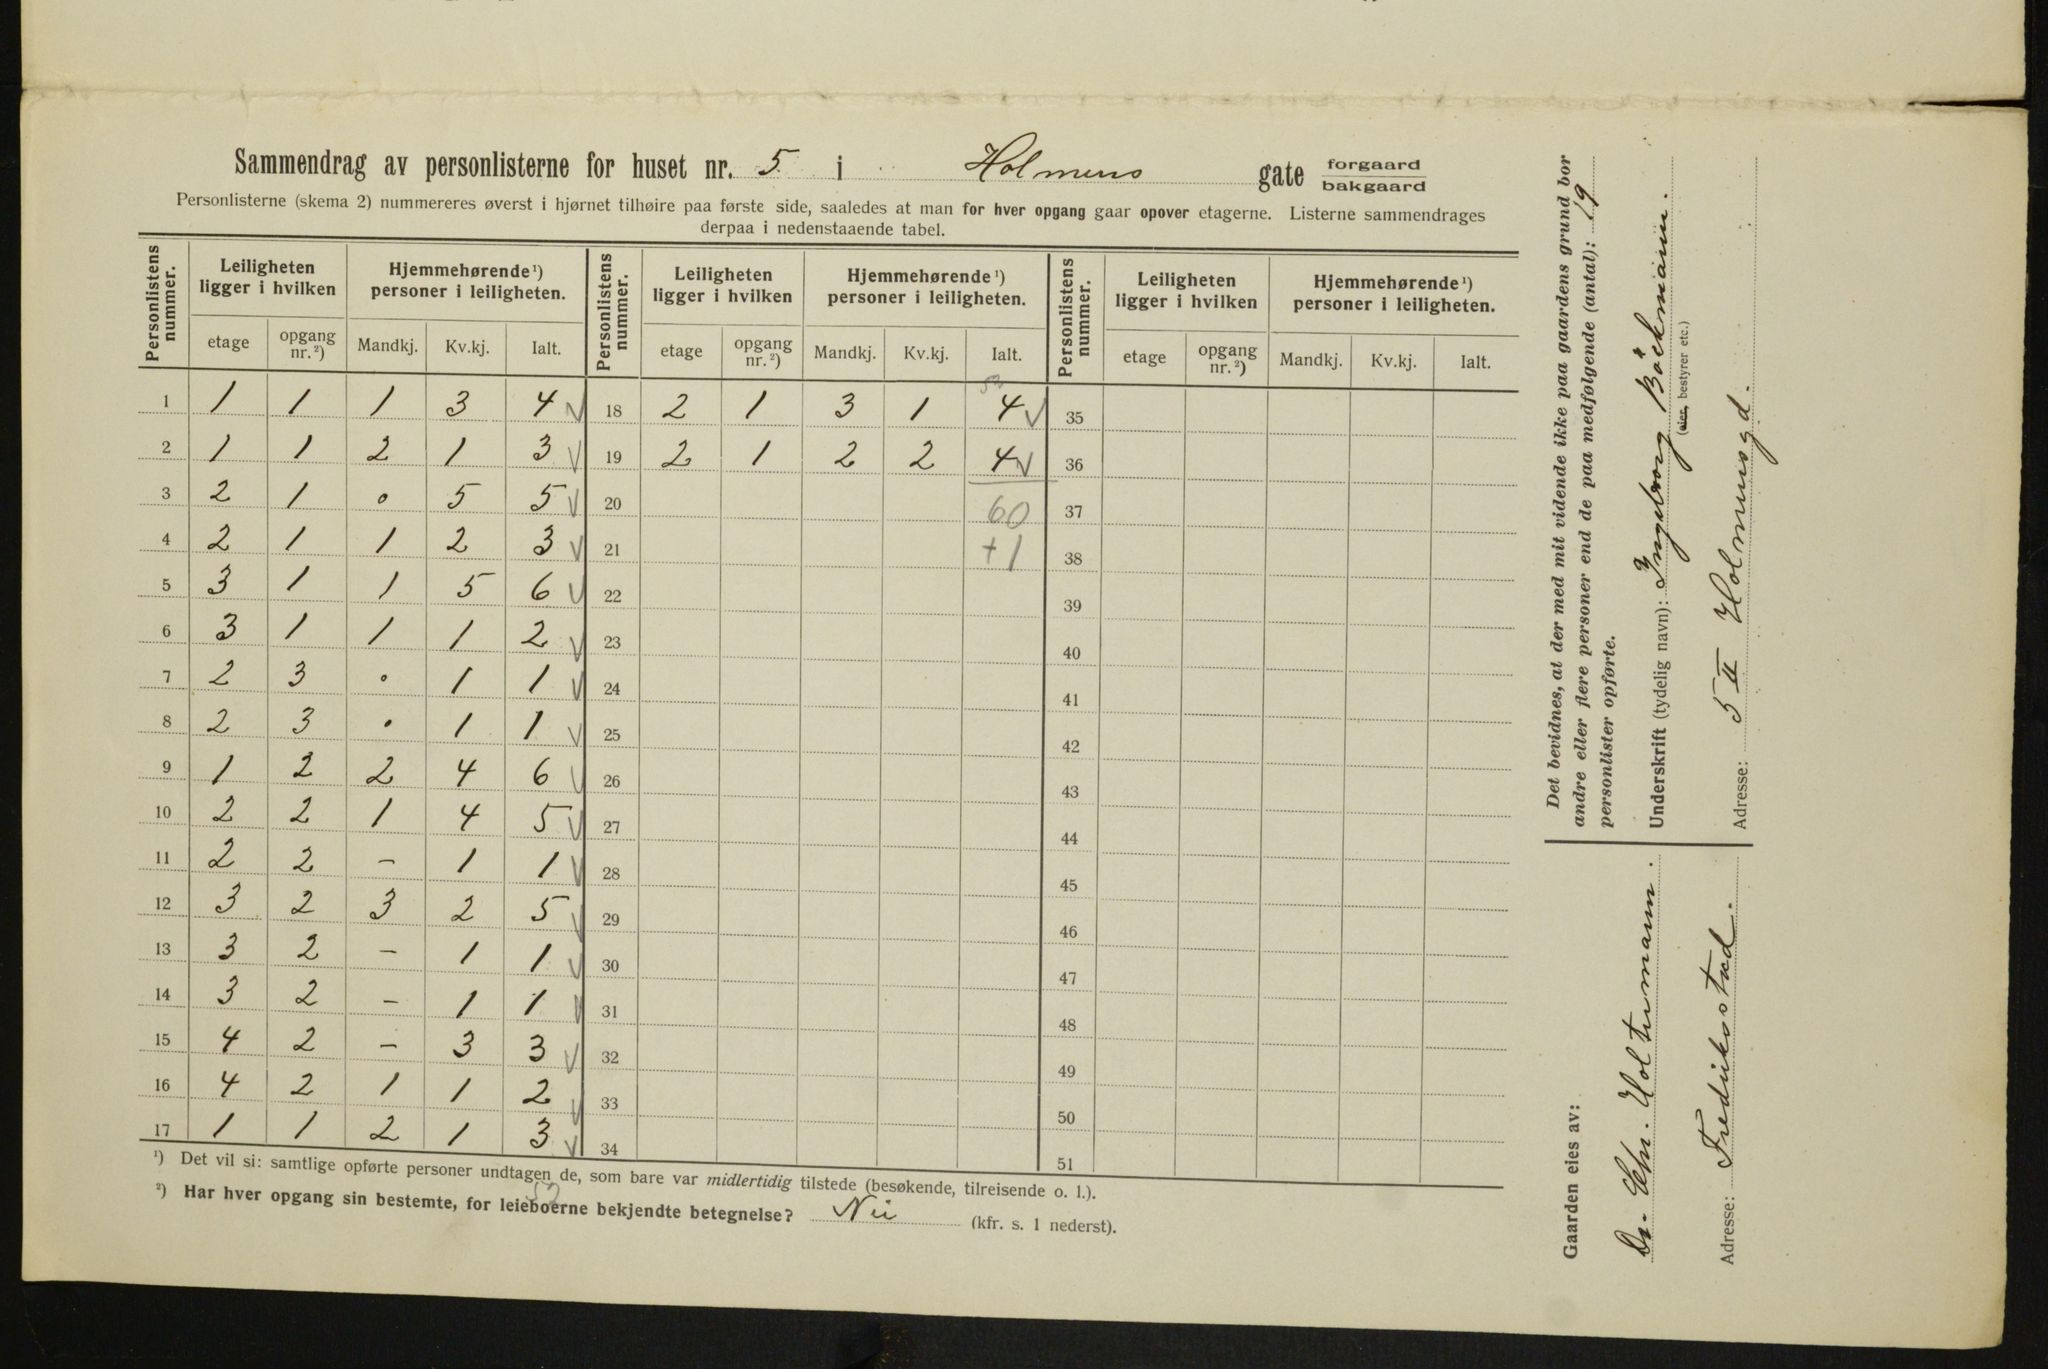 Sammendrag av personlisterne for huset nr. 5. i Holmens gate forgaard
bakgaard
Personlisterne (skema 2) nummereres øverst i hjørnet tilhøire paa første side, saaledes at man for hver opgang gaar opover etagerne. Listerne sammendrages
derpaa i nedenstaaende tabel.
Personlistens nummer. Leiligheten ligger i hvilken Hjemmehørende ¹) personer i leiligheten. Personlistens nummer. Leiligheten ligger i hvilken Hjemmehørende ¹) personer i leiligheten. Personlistens nummer. Leiligheten ligger i hvilken Hjemmehørende ¹) personer i leiligheten.
etage opgang nr. ²) Mandkj. Kv.kj. Ialt. etage opgang nr. ²) Mandkj. Kv.kj. Ialt. etage opgang nr. ²) Mandkj. Kv.kj. Ialt.
52
1 1 1 1 3 4 V 18 2 1 3 1 4 V 35
2 1 1 2 1 3 V 19 2 1 2 2 4 V 36
3 2 1 0 5 5 V 20 60 37
4 2 1 1 2 3 V 21 +1 38
5 3 1 1 5 6 V 22 39
6 3 1 1 1 2 V 23 40
7 2 3 0 1 1 V 24 41
8 2 3 0 1 1 V 25 42
9 1 2 2 4 6 V 26 43
10 2 2 1 4 5 V 27 44
11 2 2 – 1 1 V 28 45
12 3 2 3 2 5 V 29 46
13 3 2 – 1 1 V 30 47
14 3 2 – 1 1 V 31 48
15 4 2 – 3 3 V 32 49
16 4 2 1 1 2 V 33 50
17 1 1 2 1 3 V 34 51
¹) Det vil si: samtlige opførte personer undtagen de, som bare var midlertidig tilstede (besøkende, tilreisende o. l.).
52
²) Har hver opgang sin bestemte, for leieboerne bekjendte betegnelse? Nei (kfr. s. 1 nederst).
Det bevidnes, at der med mit vidende ikke paa gaardens grund bor
andre eller flere personer end de paa medfølgende (antal): 19
personlister opførte.
Underskrift (tydelig navn): Ingeborg Böckmann.
(eier, bestyrer etc.)
Adresse: 5 II Holmensgd.
Gaarden eies av:
Dr. Chr. Holtermann.
Adresse: Frediksstad.